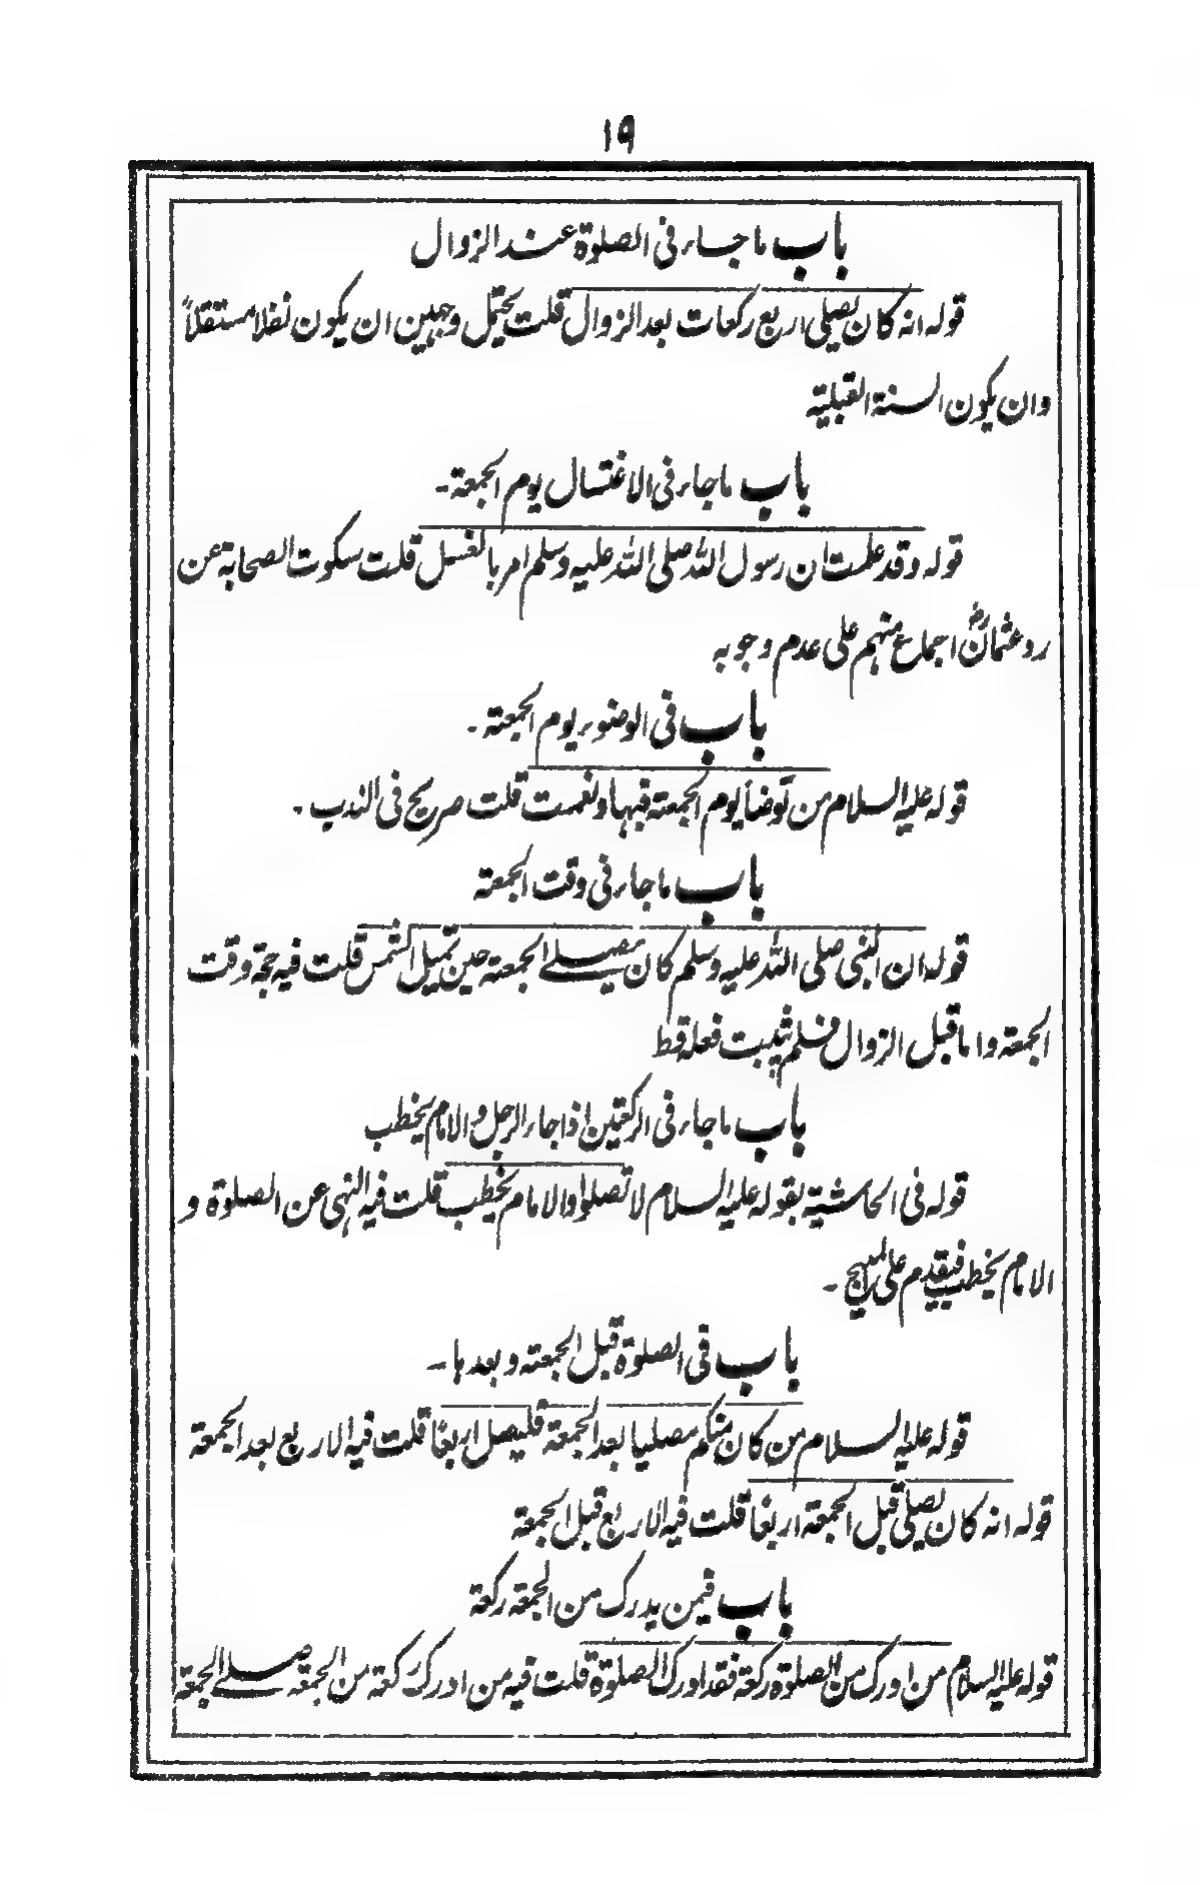 ١٩
باب ما جاء فى الصلوة عند الزوال
قوله انه كان يصلى اربع ركعات بعد الزوال قلت يحتمل وجهين ان يكون نفلا مستقلاً
وان يكون السنة القبلية
باب ما جاء فى الاغتسال يوم الجمعة۔
قوله وقد علمت ان رسول الله صلى الله عليه وسلم امر بالغسل قلت سكوت الصحابة عن
رد عثمانؓ اجماع منهم على عدم وجوبه
باب فى الوضوء يوم الجمعة۔
قوله عليه السلام من توضأ يوم الجمعة فبها ونعمت قلت صريح فى الندب۔
باب ما جاء فى وقت الجمعة
قوله ان النبى صلى الله عليه وسلم كان يصلے الجمعة حين تميل الشمس قلت فيه حجة وقت
الجمعة واما قبل الزوال فلم يثبت فعله قط
باب ما جاء فى الركعتين اذا جاء الرجل والامام يخطب
قوله فى الحاشية بقوله عليه السلام لا تصلوا والامام يخطب قلت فيه النهى عن الصلوة و
الامام يخطب فيقدم على المبيح۔
باب فى الصلوة قبل الجمعة وبعدها۔
قوله عليه السلام من كان منكم مصليا بعد الجمعة فليصل اربعًا قلت فيه الاربع بعد الجمعة
قوله انه كان يصلى قبل الجمعة اربعًا قلت فيه الاربع قبل الجمعة
باب فيمن يدرك من الجمعة ركعة
قوله عليه السلام من ادرك من الصلوة ركعة فقد ادرك الصلوة قلت فيه من ادرك ركعة من الجمعة صلے الجمعة